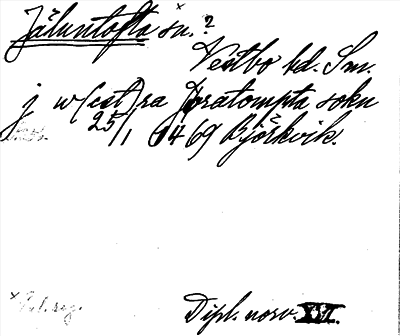 Jäluntofta sn.?
Vestbo hd. Sm.
j w(est)ra Joratompta sokn
25/1 1469 Björkvik.
Dipl. norv. XVI.